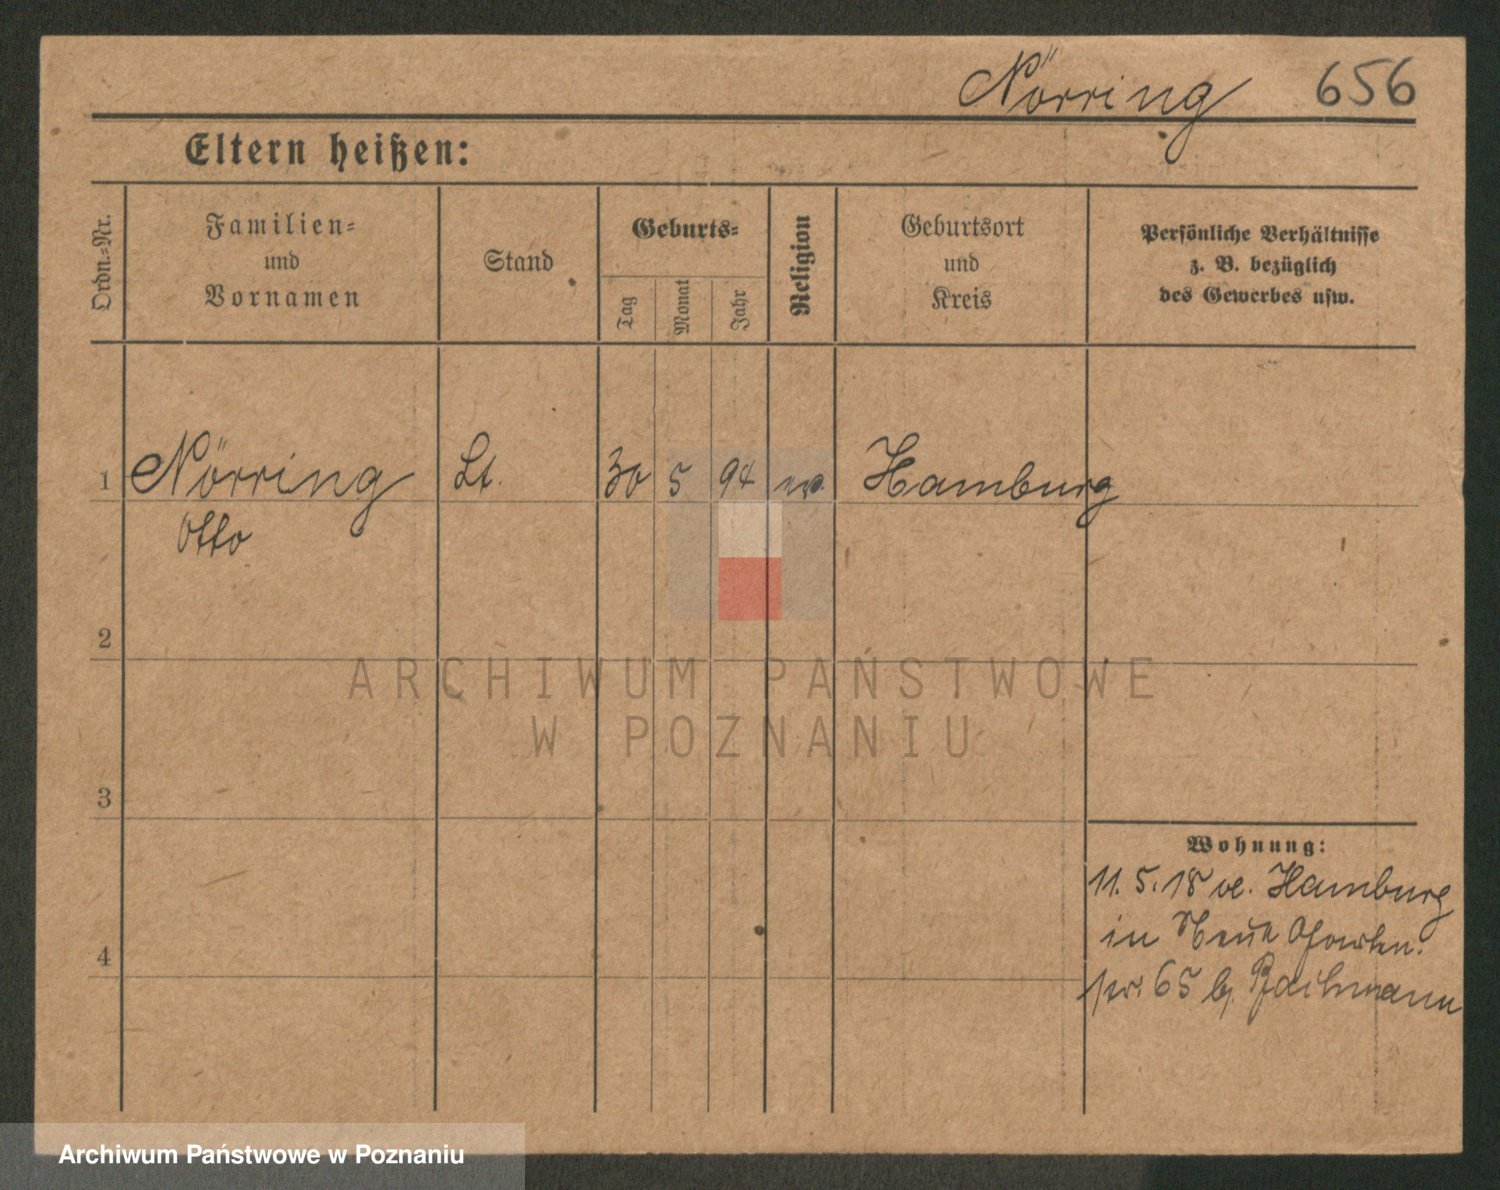 Nörring 656
Eltern heißen:
Ordn.-Nr.
Familien-
und
Vornamen
Stand
Geburts-
Tag
Monat
Jahr
Religion
Geburtsort
und
Kreis
Persönliche Verhältnisse
z. B. bezüglich
des Gewerbes usw.
1 Nörring Lt. 30 5 94 ev. Hamburg
Otto
2
3
4
Wohnung:
11. 5. 18 Hamburg
in Neue
65 b.
ARCHIWUM PAŃSTWOWE
W POZNANIU
Archiwum Państwowe w Poznaniu